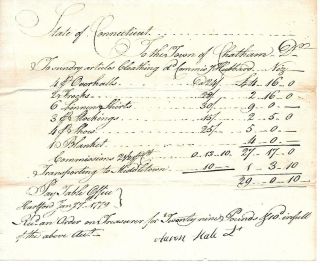 State of Connecticut
To the Town of Chatham Dr
To sundry articles Cloathing dd Commis'y Hubbard Viz
4 pr Overhalls @ 24/ £4..16..0
2 Frocks 28/ 2..16..0
6 Linnen Shirts 30/ 9..0..—
3 pr Stockings 15/ 2..5..0
4 pr Shoes 25/ 5..0..—
1 Blanket 4..0..—
Commissions 0..13..10 27..17..0
Transporting to Middletown 10..— 1..3..10
29..0..10
Pay Table Office
Hartford Jan 1779
Rec'd an Order on Treasurer for Twenty nine Pounds /10 in full
of the above Acct.
Aaron Hale Lt